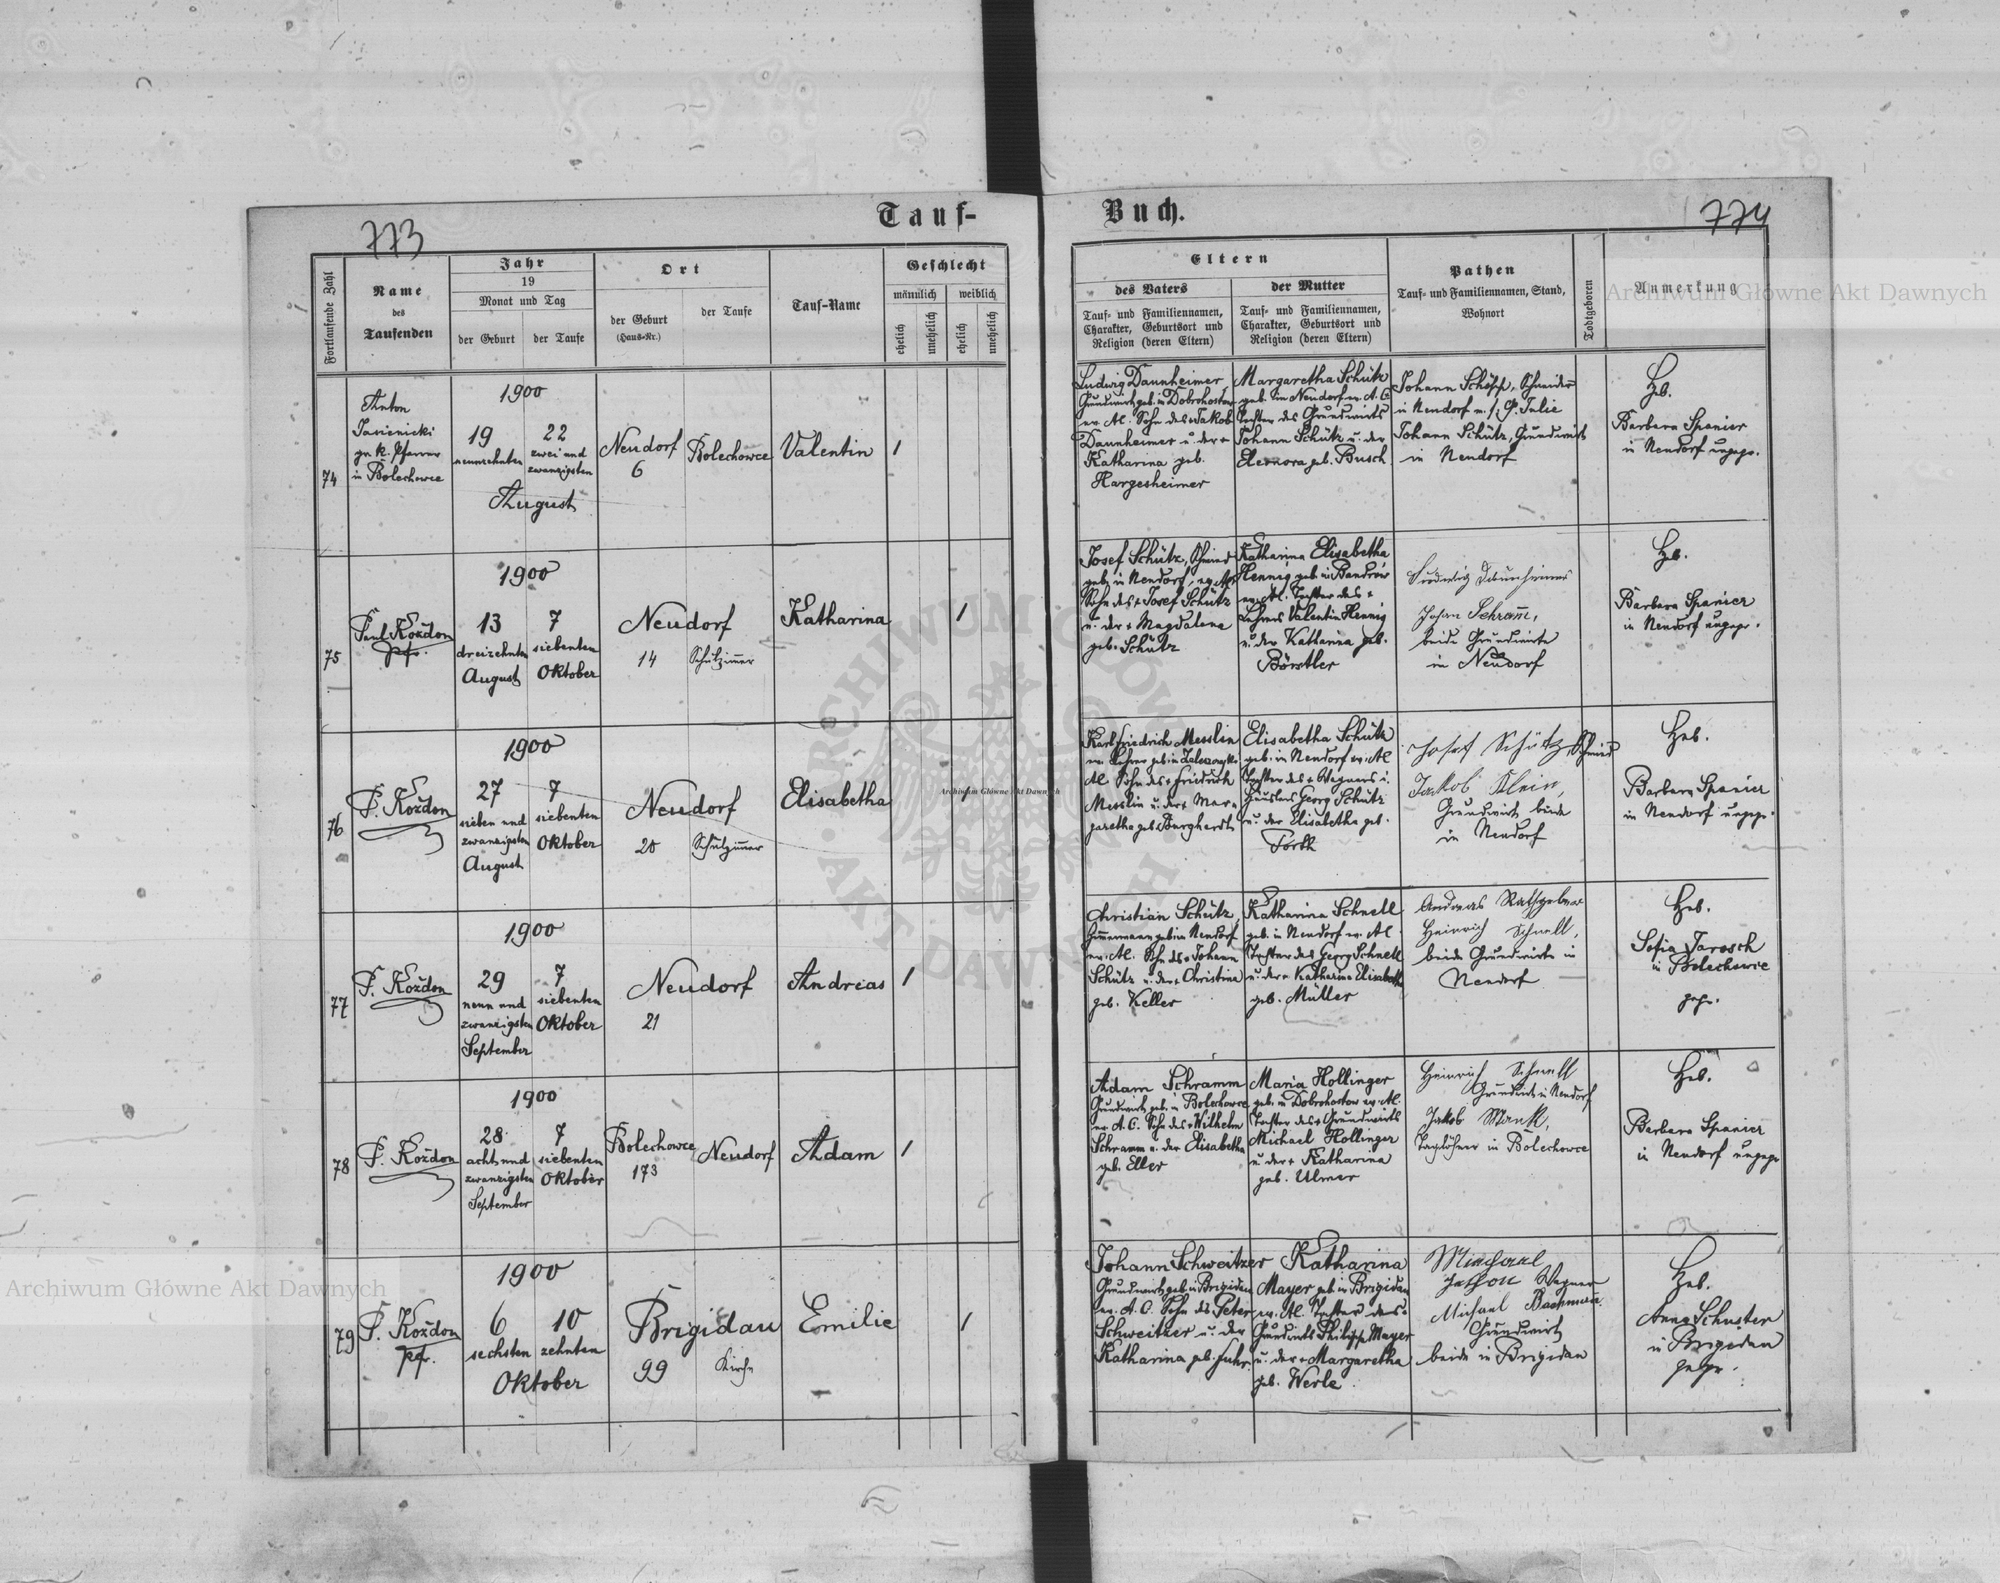 Tauf-
Buch.
773
774
Fortlaufende Zahl
Name
des
Taufenden
Jahr
19
Monat und Tag
der Geburt
der Taufe
Ort
der Geburt
(Haus-Nr.)
der Taufe
Tauf-Name
Geschlecht
männlich
weiblich
ehelich
unehelich
ehelich
unehelich
Eltern
des Vaters
Tauf- und Familiennamen,
Charakter, Geburtsort und
Religion (deren Eltern)
der Mutter
Tauf- und Familiennamen,
Charakter, Geburtsort und
Religion (deren Eltern)
Pathen
Tauf- und Familiennamen, Stand,
Wohnort
Todtgeboren
Anmerkung
74
Anton
gr. k. Pfarrer
in Bolechowce
1900
19
neunzehnten
22
zwei und
zwanzigsten
August
Neudorf
6
Bolechowce
Valentin
1
Ludwig Dannheimer,
Grundwirth geb. in Dobrohostow
ev. A. C. Sohn des Jakob
Dannheimer u. der +
Katharina geb.
Hargesheimer
Margaretha Schütz
geb. in Neudorf ev. A. C.
Tochter des Grundwirts
Johann Schütz u. der
Eleonora geb. Busch
Johann Schöpp, Schneider
in Neudorf
Johann Schütz, Grundwirt
in Neudorf
Hb.
Barbara Spanier
in Neudorf ungepr.
75
Paul Koždon
pfr.
1900
13
dreizehnten
August
7
siebenten
Oktober
Neudorf
14
Schulzimmer
Katharina
1
Josef Schütz, Schmied
geb. in Neudorf, ev. A. C.
Sohn des + Josef Schütz
u. der + Magdalena
geb. Schütz
Katharina Elisabetha
Hennig geb. in Bandrow
ev. A. C. Tochter des +
Lehrers Valentin Hennig
u. der Katharina geb.
Börstler
Ludwig Dannheimer
Johan Schram̄,
beide Grundwirte
in Neudorf
Hb.
Barbara Spanier
in Neudorf ungepr.
76
P. Koždon
1900
27
sieben und
zwanzigsten
August
7
siebenten
Oktober
Neudorf
20
Schulzimmer
Elisabetha
1
Karl Friedrich Messlin
ev. Lehrer geb. in Zaleszczyki
A. C. Sohn des + Friedrich
Messlin u. der + Mar-
garetha geb. Burghardt
Elisabetha Schütz
geb. in Neudorf ev. A. C.
Tochter des + Wagners u.
Häuslers Georg Schütz
u. der Elisabetha geb.
Josef Schütz, Schmied
Jakob Klein,
Grundwirt beide
in Neudorf
Heb.
Barbara Spanier
in Neudorf ungepr.
77
P. Koždon
1900
29
neun und
zwanzigsten
September
7
siebenten
Oktober
Neudorf
21
Andreas
1
Christian Schütz,
Zimmermann geb. in Neudorf
ev. A. C. Sohn des + Johann
Schütz u. der + Christine
geb. Keller
Katharina Schnell
geb. in Neudorf ev. A. C.
Tochter des Georg Schnell
u. der + Katharina Elisabetha
geb. Müller
Andreas Rathgeber
Heinrich Schnell,
beide Grundwirte in
Neudorf
Heb.
Sofia Jarosch
in Bolechowce
gepr.
78
P. Koždon
1900
28
acht und
zwanzigsten
September
7
siebenten
Oktober
Bolechowce
173
Neudorf
Adam
1
Adam Schramm
Grundwirth geb. in Bolechowce
ev. A. C. Sohn des + Wilhelm
Schramm u. der Elisabetha
geb. Eller
Maria Hollinger
geb. in Dobrohostow ev. A. C.
Tochter des + Grundwirts
Michael Hollinger
u. der + Katharina
geb. Ulmer
Heinrich Schnell
Grundwirt in Neudorf
Jakob Mank,
Taglöhner in Bolechowce
Heb.
Barbara Spanier
in Neudorf ungepr.
79
P. Koždon
pfr.
1900
6
sechsten
10
zehnten
Oktober
Brigidau
99
Kirche
Emilie
1
Johann Schweitzer
Grundwirth geb. in Brigidau
ev. A. C. Sohn des Peter
Schweitzer u. der
Katharina geb. Fuhr
Katharina
Mayer geb. in Brigidau
ev. A. C. Tochter des +
Grundwirts Philipp Mayer
u. der + Margaretha
geb. Werle
Wagner
Michael Bachmann
Grundwirt
beide in Brigidau
Heb.
Anna Schuster
in Brigidau
gepr.
Archiwum Główne Akt Dawnych
Archiwum Główne Akt Dawnych
Archiwum Główne Akt Dawnych
ARCHIWUM GŁÓWNE
AKT DAWNYCH